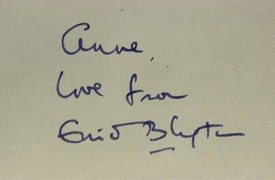 Anne,
love from
Enid Blyton